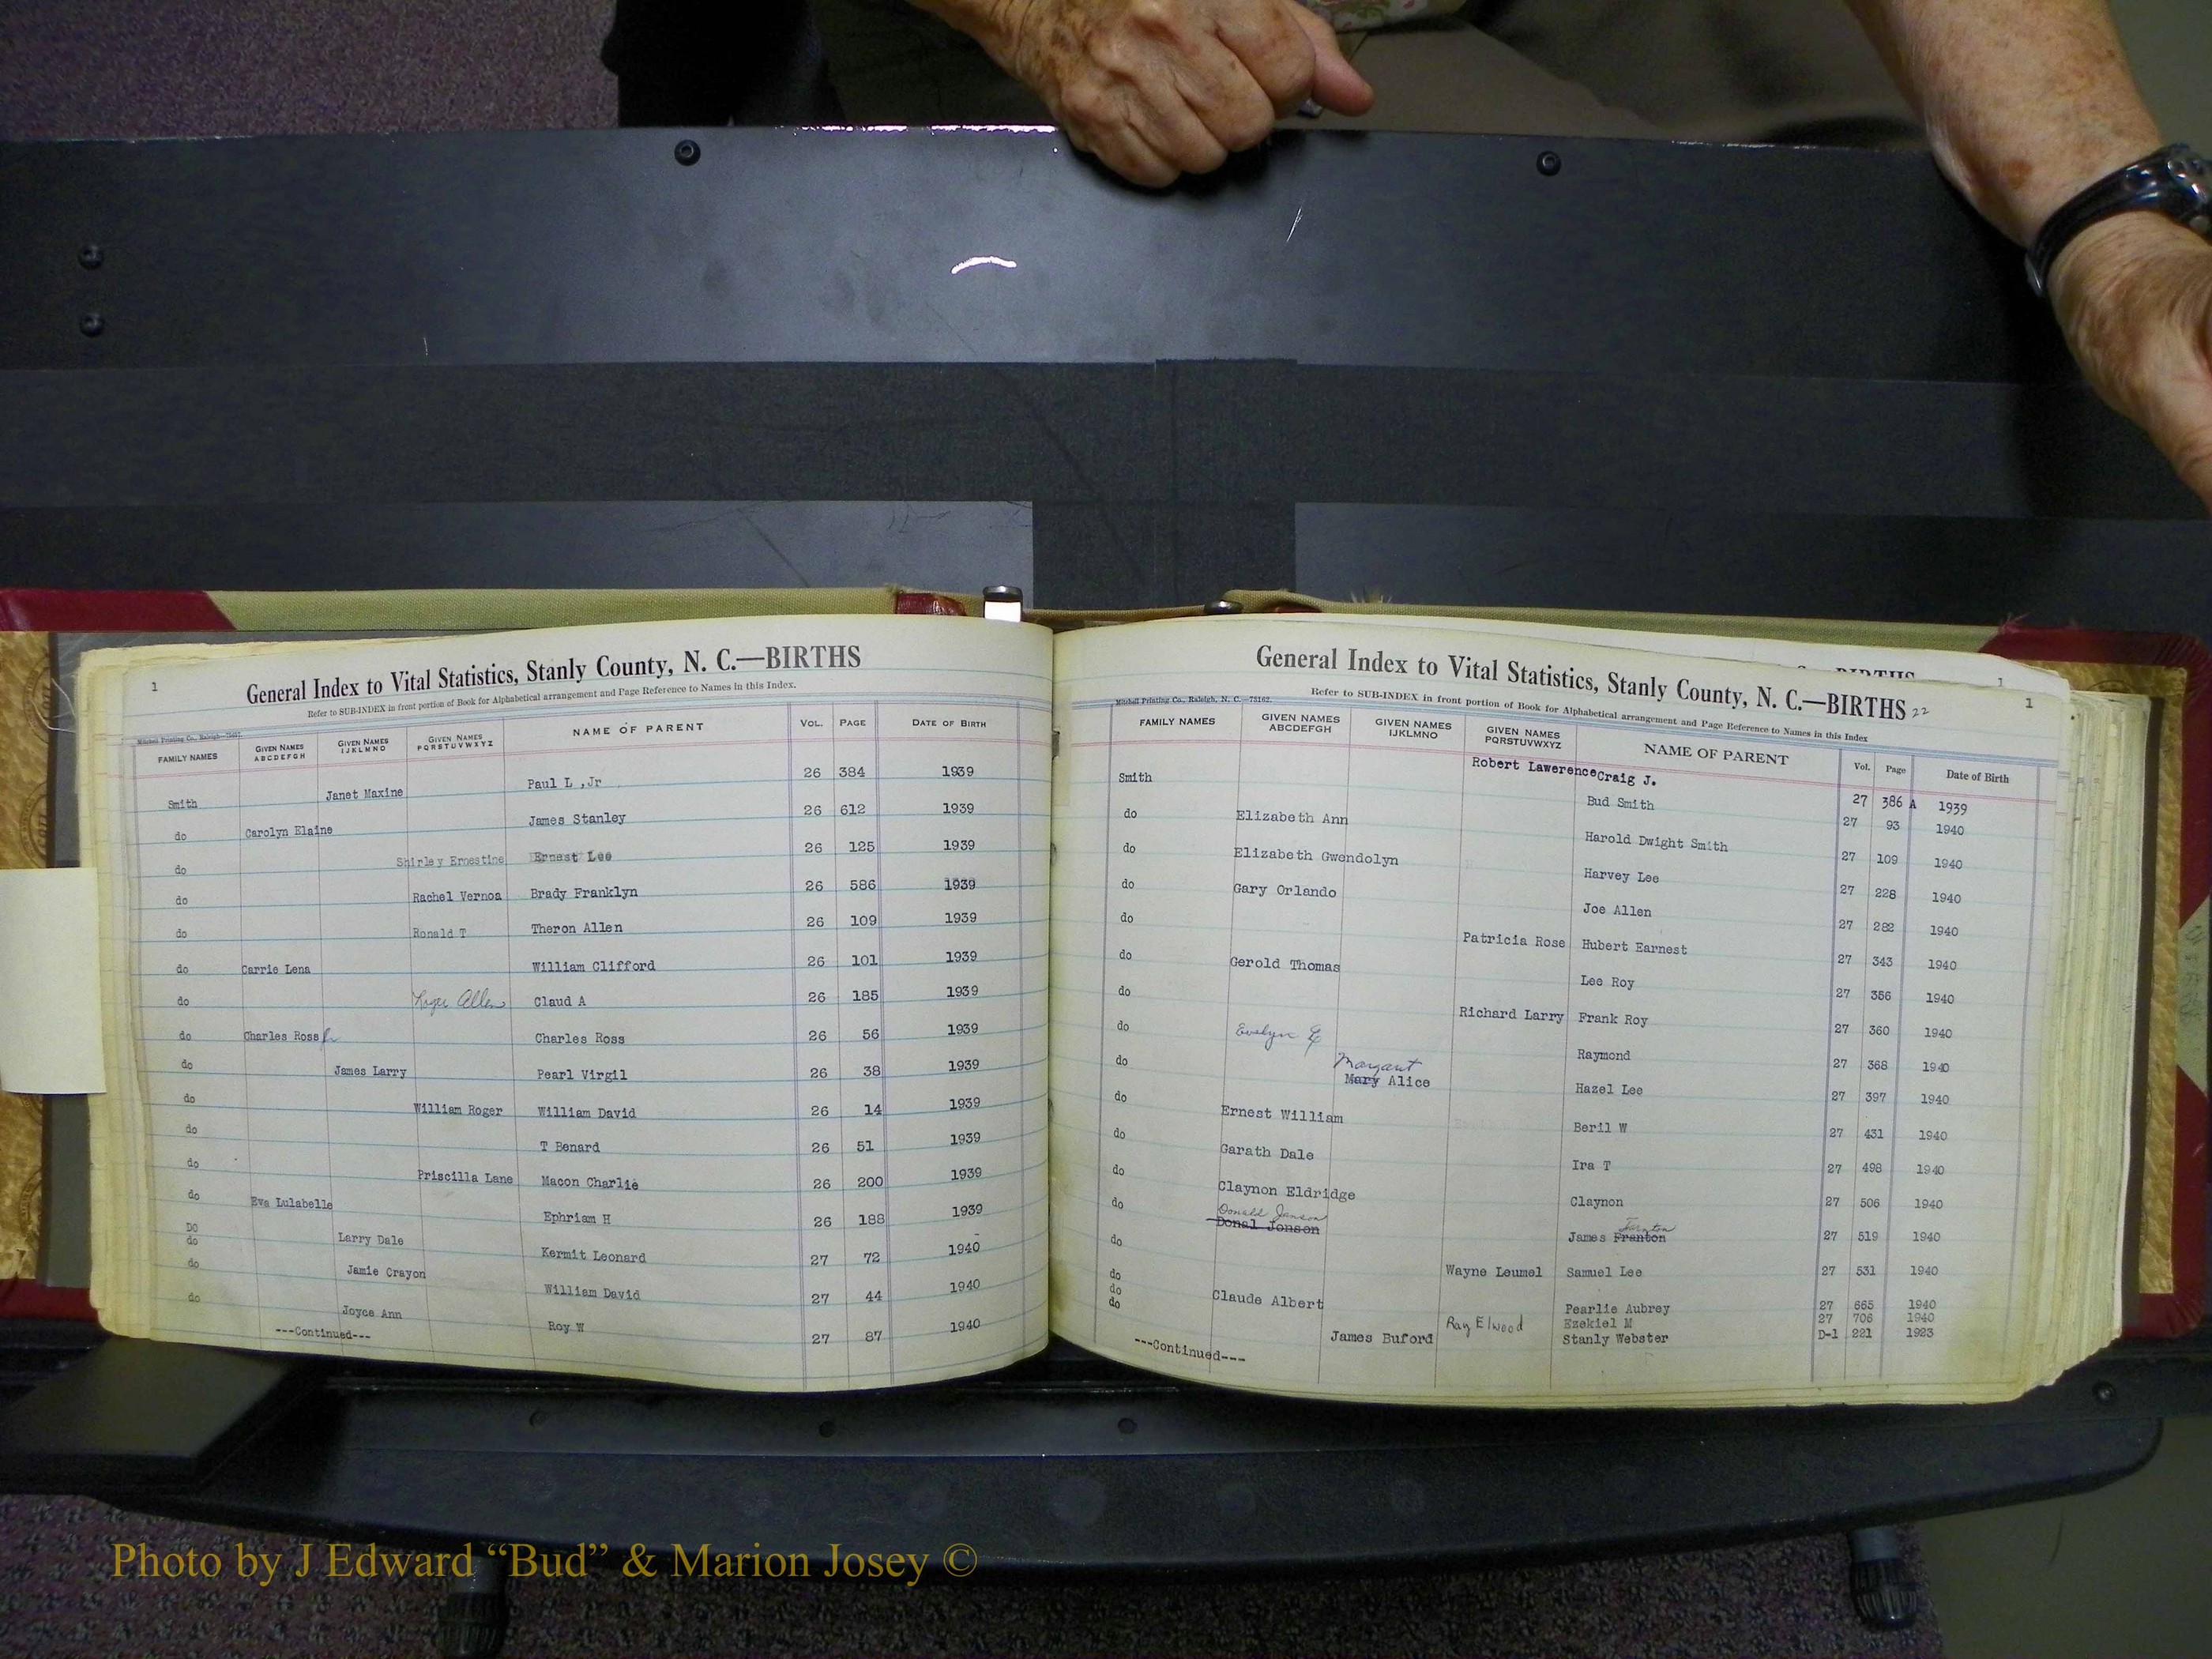 1
General Index to Vital Statistics, Stanly County, N. C.—BIRTHS
Refer to SUB-INDEX in front portion of Book for Alphabetical arrangement and Page Reference to Names in this Index.
Mitchell Printing Co., Raleigh
FAMILY NAMES GIVEN NAMES ABCDEFGH GIVEN NAMES IJKLMNO GIVEN NAMES PQRSTUVWXYZ NAME OF PARENT VOL. PAGE DATE OF BIRTH
Smith Janet Maxine Paul L ,Jr 26 384 1939
do Carolyn Elaine James Stanley 26 612 1939
do Shirley Ernestine Ernest Lee 26 125 1939
do Rachel Vernoa Brady Franklyn 26 586 1939
do Ronald T Theron Allen 26 109 1939
do Carrie Lena William Clifford 26 101 1939
do Allen Claud A 26 185 1939
do Charles Ross Jr Charles Ross 26 56 1939
do James Larry Pearl Virgil 26 38 1939
do William Roger William David 26 14 1939
do T Benard 26 51 1939
do Priscilla Lane Macon Charlie 26 200 1939
do Eva Lulabelle Ephriam H 26 188 1939
DO
do Larry Dale Kermit Leonard 27 72 1940
do Jamie Crayon William David 27 44 1940
do Joyce Ann Roy W 27 87 1940
---Continued---
BIRTHS
1
General Index to Vital Statistics, Stanly County, N. C.—BIRTHS 22
1
Refer to SUB-INDEX in front portion of Book for Alphabetical arrangement and Page Reference to Names in this Index
Mitchell Printing Co., Raleigh, N. C.—75162.
FAMILY NAMES GIVEN NAMES ABCDEFGH GIVEN NAMES IJKLMNO GIVEN NAMES PQRSTUVWXYZ NAME OF PARENT Vol. Page Date of Birth
Smith Robert Lawerence Craig J. 27 386 A 1939
do Elizabeth Ann Bud Smith 27 93 1940
do Elizabeth Gwendolyn Harold Dwight Smith 27 109 1940
do Gary Orlando Harvey Lee 27 228 1940
do Joe Allen 27 282 1940
do Gerold Thomas Patricia Rose Hubert Earnest 27 343 1940
do Lee Roy 27 356 1940
do Evelyn E Richard Larry Frank Roy 27 360 1940
do Margaret
Mary Alice Raymond 27 368 1940
do Ernest William Hazel Lee 27 397 1940
do Garath Dale Beril W 27 431 1940
do Claynon Eldridge Ira T 27 498 1940
do Donald Janson
Donal Jonson Claynon 27 506 1940
do James Franton 27 519 1940
do Wayne Leumel Samuel Lee 27 531 1940
do Claude Albert Pearlie Aubrey 27 665 1940
do Ray Elwood Ezekiel M 27 706 1940
James Buford Stanly Webster D-1 221 1923
---Continued---
Photo by J Edward “Bud” & Marion Josey ©